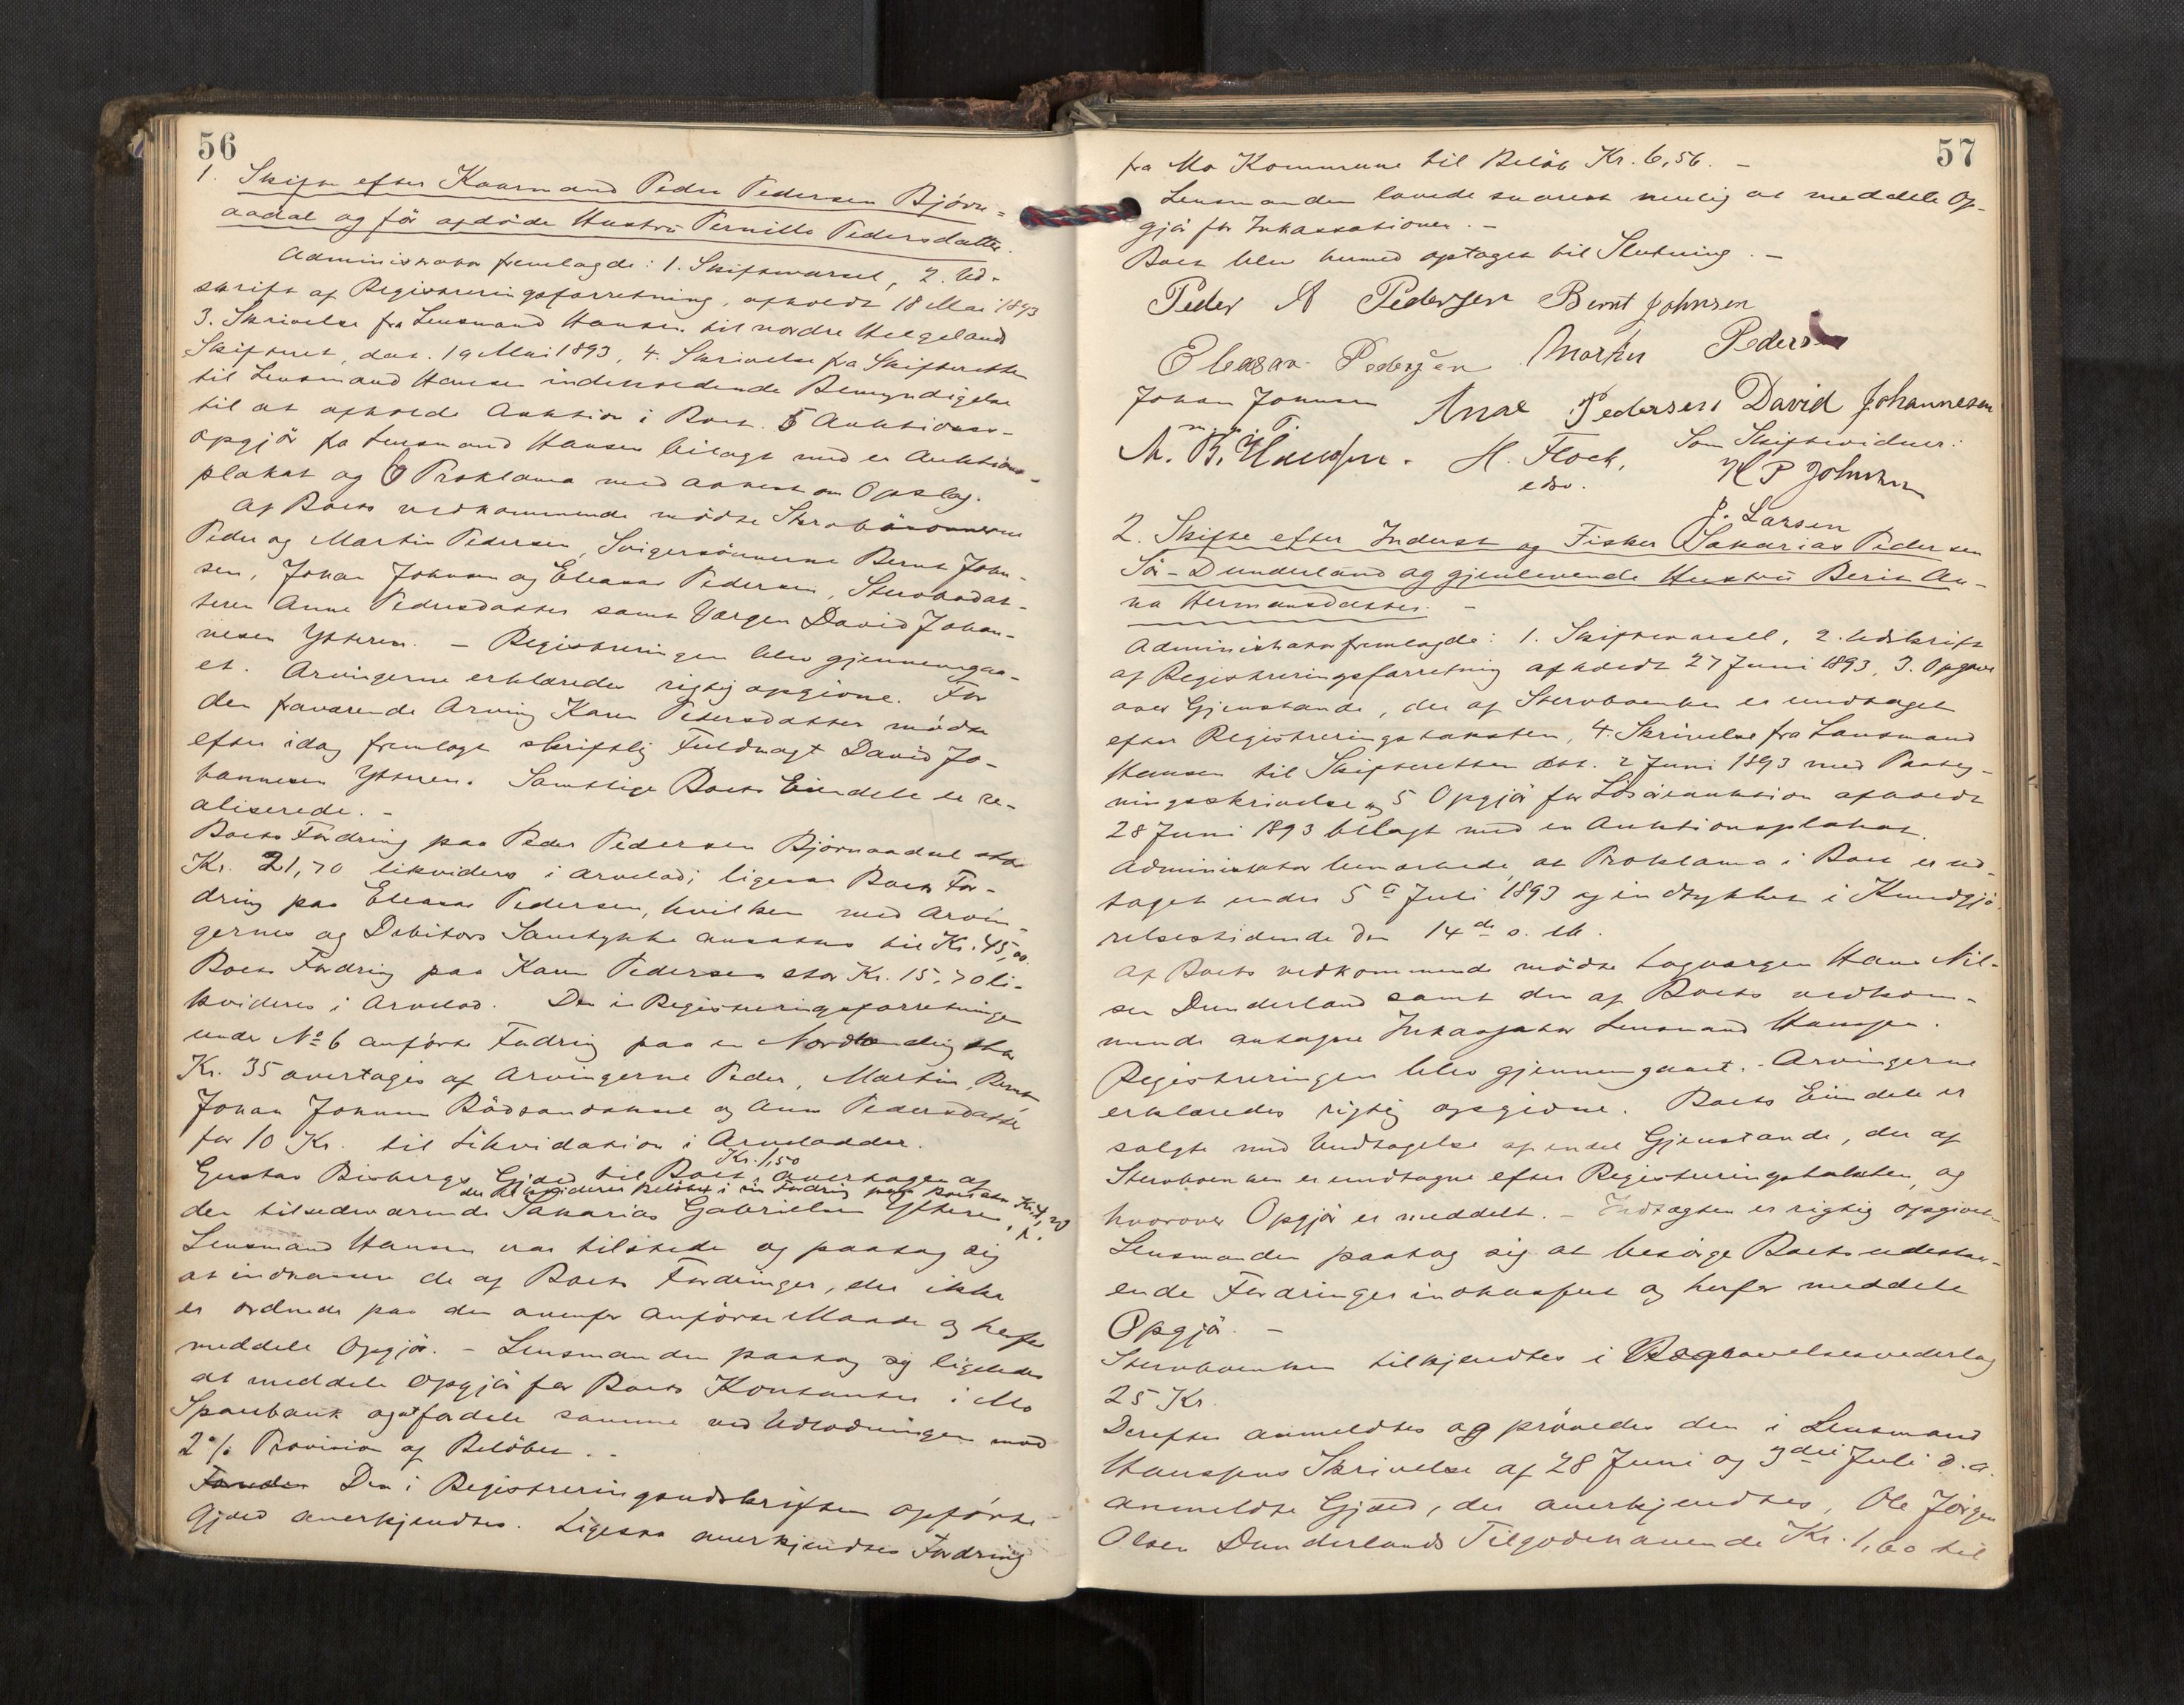 56
1. Skifte efter Kaarmand Peder Pedersen Bjørn=
aadal og før afdöde Hustru Pernille Pedersdatter.
Administrator fremlagde: 1. Skiftevarsel, 2. Ud-
skrift af Registreringsforretning, afholdt 18 Mai 1893
3. Skrivelse fra Lensmand Hansen til nordre Helgeland
Skifteret, dat. 19 Mai 1893, 4. Skrivelse fra Skifteretten
til Lensmand Hansen indeholdende Bemyndigelse
til at afholde Auktion i Boet. 5 Auktions-
opgjör fra Lensmand Hansen bilagt med en Auktions-
plakat og 6 Proklama med attest om Opslag.
Af Boets vedkommende mödte Sterbösönnerne
Peder og Martin Pedersen, Svigersönnerne Bernt John-
sen, Johan Johnsen og Eleasar Pedersen, Sterbodat-
teren Anne Pedersdatter samt Værgen David Johan-
nesen Ytteren. – Registreringen blev gjennemgaa-
et. Arvingerne erklæredes rigtig opgivne. For
den fraværende Arving Karen Pedersdatter mödte
efter idag fremlagt skriftlig Fuldmagt David Jo-
hannesen Ytteren. Samtlige Boets Eiendele er re-
aliserede. –
Boets Fordring paa Peder Pedersen Bjørnaadal stor
Kr. 21,70 likvideres i arvelod; ligesaa Boets For-
dring paa Eleasar Pedersen, hvilken med Arvin-
gernes og Debitors Samtykke ansattes til Kr. 45,00.
Boets Fordring paa Karen Pedersen stor Kr. 15,70 li-
kvideres i Arvelod. Den i Registreringsforretningen
under No 6 anførte Fordring paa en Nordlending stor
Kr. 35 overtages af Arvingerne Peder, Martin, Bernt,
Johan Johnsen og Anne Pedersdatter
for 10 Kr. til Likvidation i Arvelodder.
Gustav Gjæld til Boet, Kr. 1,50 overtages af
der likviderer Beløbet i sin Fordring paa Boet stor Kr. 4,20
den tilstedeværende Sakarias Gabrielsen Ytteren.
Lensmand Hansen var tilstede og paatog sig
at indkassere de af Boets Fordringer, der ikke
er ordnede paa den ovenfor anførte Maade og herfor
meddele Opgjör. – Lensmanden paatog sig ligeledes
at meddele opgjör for Boets Kontanter i Mo
Sparebank og at fordele samme ved Udlodningen mod
2 % Provision af Beløbet. –
Den i Registreringsudskriften opførte
Gjæld anerkjendtes. Ligesaa anerkjendtes Fordring
57
fra Mo Kommune til Beløb Kr. 6,56. –
Lensmanden lovede snarest mulig at meddele Op-
gjör for Inkassationen. –
Boet blev hermed optaget til Slutning. –
Peder A Pedersen Bernt Johnsen
Eleasar Pedersen Martin Pedersen
Johan Johnsen Anne Pedersen David Johannesen
m. p. P.
A. B. Hansen. H. Flock, Som Skiftevidner:
edsv. H P Johnsen
J. Larsen
2. Skifte efter Inderst og Fisker Sakarias Pedersen
Sör-Dunderland og gjenlevende Hustru Berit An-
na Hermansdatter. –
Administrator fremlagde: 1. Skiftevarsel, 2. Udskrift
af Registreringsforretning afholdt 27 Juni 1893, 3. Opgave
over Gjenstande, der af Stervboenken er undtaget
efter Registreringstaksten, 4. Skrivelse fra Lensmand
Hansen til Skifteretten dat. 2 Juni 1893 med Paateg-
ningsskrivelse og 5 Opgjör for Lösöreauktion afholdt
28 Juni 1893 bilagt med en Auktionsplakat.
Administrator bemærkede, at Proklama i Boet er ud-
taget under 5te Juli 1893 og indrykket i Kundgjö-
relsestidende den 14de s. M.
Af Boets vedkommende mödte Lagværgen Hans Nil-
sen Dunderland samt den af Boets vedkom-
mende antagne Inkassator Lensmand Hansen.
Registreringen blev gjennemgaaet. – Arvingerne
erklæredes rigtig opgivne. Boets Eiendele er
solgte med Undtagelse af endel Gjenstande, der af
Stervboenken er undtagne efter Registreringstaksten, og
hvorover Opgjör er meddelt. – Indtægten er rigtig opgivet.
Lensmanden paatog sig at besörge Boets udestaa-
ende Fordringer indkasseret og herfor meddele
Opgjör. –
Stervboenken tilkjendtes i Begravelsesvederlag
25 Kr.
Derefter anmeldtes og prövedes den i Lensmand
Hansens Skrivelse af 28 Juni og 3die Juli d. a.
anmeldte Gjæld, der anerkjendtes, Ole Jörgen
Olsen Dunderlands Tilgodehavende Kr. 1,60 til